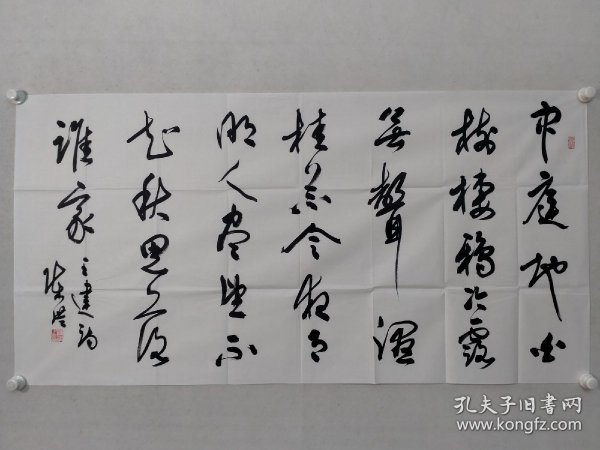 中庭地白
樹棲鴉冷露
無聲濕
桂花今夜月
明人盡望不
知秋思落
誰家
王建詩
孔夫子旧书网
www.kongfz.com